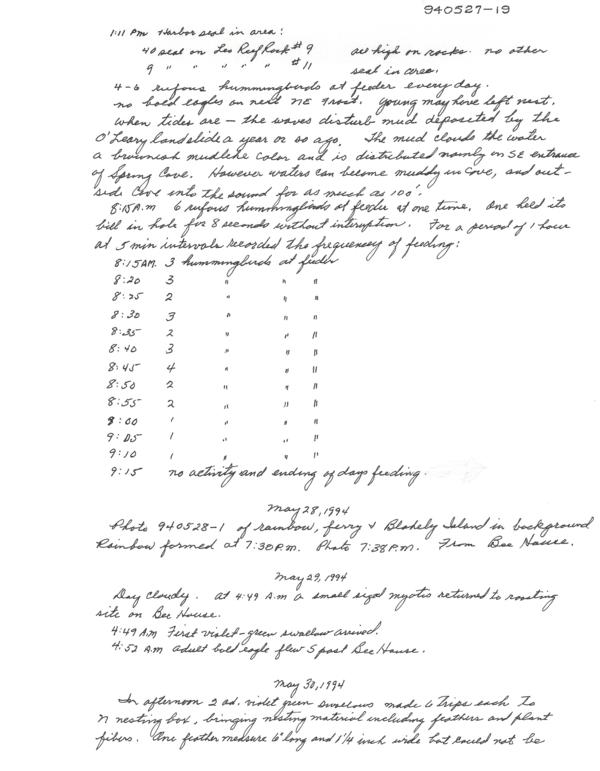 940527-19
1:11 Pm Harbor seal in area:
40 seal on Leo Reef Rock #9 all high on rocks. no other
9 " " " " " #11 seal in area.
4-6 rufous hummingbirds at feeder every day.
no bald eagles on nest NE Trost. young may have left nest.
when tides are - the waves disturb mud deposited by the
O'Leary landslide a year or so ago. The mud clouds the water
a brownish mudline color and is distributed mainly on SE entrance
of Spring Cove. However waters can become muddy in cove, and out-
side Cove into the sound for as much as 100'.
8:15A.m 6 rufous hummingbirds at feeder at one time, one held its
bill in hole for 8 seconds without interuption. For a period of 1 hour
at 5 min intervals recorded the frequency of feeding:
8:15AM. 3 hummingbirds at feeder
8:20 3 " " "
8:25 2 " " "
8:30 3 " " "
8:35 2 " " "
8:40 3 " " "
8:45 4 " " "
8:50 2 " " "
8:55 2 " " "
9:00 1 " " "
9:05 1 " " "
9:10 1 " " "
9:15 no activity and ending of days feeding.
May 28, 1994
Photo 940528-1 of rainbow, ferry & Blakely Island in background
Rainbow formed at 7:30P.m. Photo 7:38P.m. From Bee House.
May 29, 1994
Day cloudy. at 4:49 A.m a small sized myotis returned to roosting
site on Bee House.
4:49 A.m First violet-green swallow arrived.
4:52 A.m adult bald eagle flew S past Bee House.
May 30, 1994
In afternoon 2 ad. violet green swallows made 6 trips each to
N nesting box, bringing nesting material including feathers and plant
fibers. One feather measure 6" long and 1 1/4 inch wide but could not be